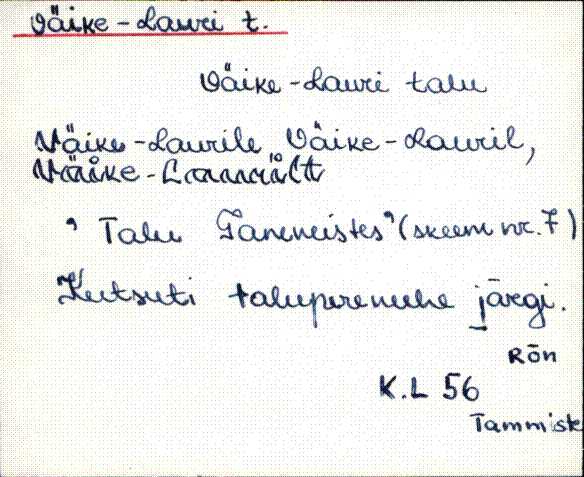 Väike-Lauri t.
Väike-Lauri talu
Väike-Laurile Väike-Lauril,
Väike-
" Talu Tammistes" (skeem nr. 7)
Kutsuti taluperemehe järgi.
Rõn
K.L 56
Tammiste